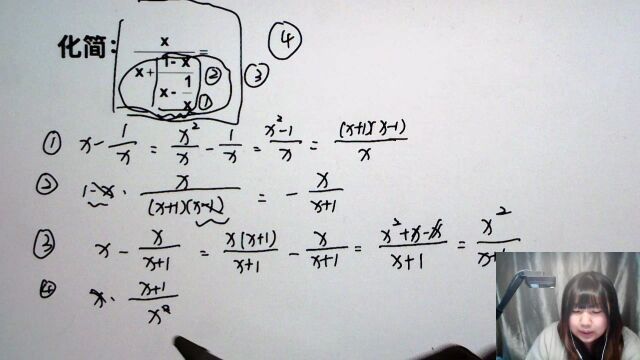 化简: x / (x + (1-x) / (x - 1/x)) =
② ③ ④
①
① x - 1/x = x²/x - 1/x = x²-1/x = (x+1)(x-1)/x
② 1-x · x/(x+1)(x-1) = - x/x+1
③ x - x/x+1 = x(x+1)/x+1 - x/x+1 = x²+x-x/x+1 = x²/x+1
④ x · x+1/x²